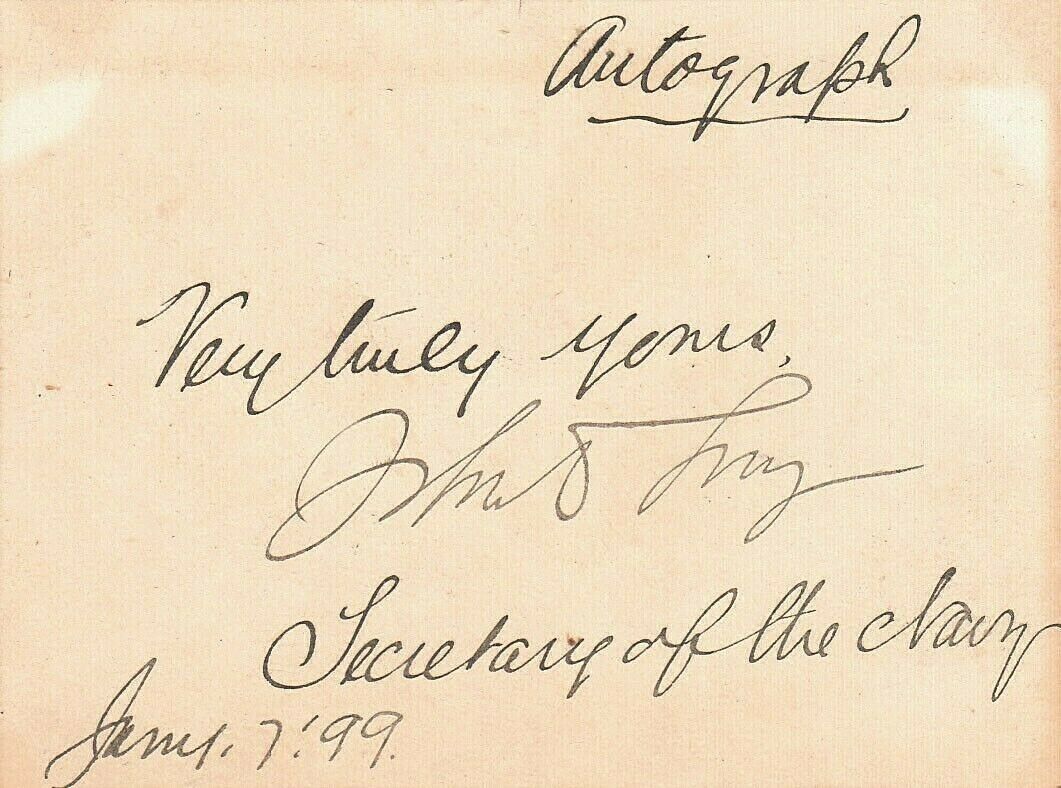 Autograph
Very truly yours,
John D Long
Secretary of the Navy
Jany. 7. '99.